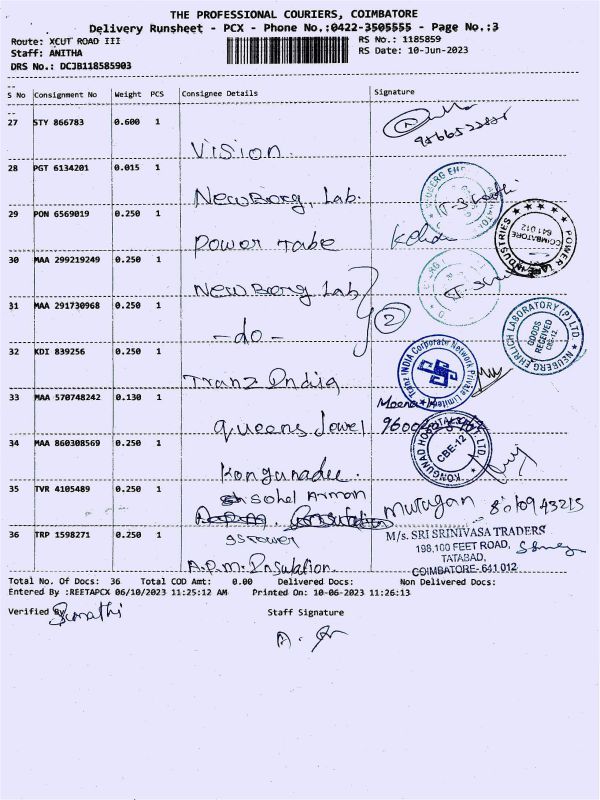 THE PROFESSIONAL COURIERS, COIMBATORE
Delivery Runsheet - PCX - Phone No.:0422-3505555 - Page No.:3
Route: XCUT ROAD III
RS No.: 1185859
Staff: ANITHA
RS Date: 10-Jun-2023
DRS No.: DCJB118585903
S No Consignment No Weight PCS Consignee Details Signature
27 STY 866783 0.600 1
Vision
28 PGT 6134201 0.015 1
NewBerg, Lab.
29 PON 6569019 0.250 1
Power Take
30 MAA 299219249 0.250 1
New Berg Lab
2
31 MAA 291730968 0.250 1
-do-
NEUBERG EHRLICH LABORATORY (P) LTD.
GOODS RECEIVED
CBE-12
POWER INDUSTRIES
COIMBATORE
641 012
32 KDI 839256 0.250 1
Tranz India
Tranz INDIA Corporate Network Private Limited
33 MAA 570748242 0.130 1
Queens Jewel
34 MAA 860308569 0.250 1
Kongunadu.
KONGUNAD HOSPITAL (P) LTD.
CBE-12
35 TVR 4105489 0.250 1
Sohel Arman
Murugan
36 TRP 1598271 0.250 1
A.P.M. Insulation.
M/s. SRI SRINIVASA TRADERS
198,100 FEET ROAD,
TATABAD,
COIMBATORE- 641 012
Total No. Of Docs: 36 Total COD Amt: 0.00 Delivered Docs: Non Delivered Docs:
Entered By :REETAPCX 06/10/2023 11:25:12 AM Printed On: 10-06-2023 11:26:13
Verified By
Sumathi
Staff Signature